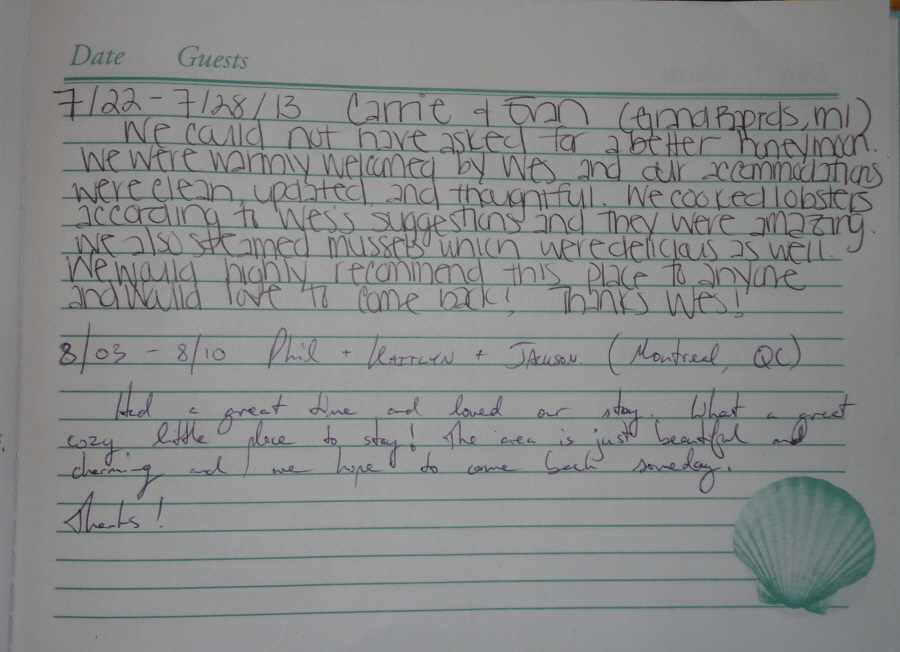 Date Guests
7/22 - 7/28/13 Carrie & Evan (Grand Rapids, MI)
We could not have asked for a better honeymoon.
We were warmly welcomed by Wes and our accommodations
were clean, updated, and thoughtful. We cooked lobsters
according to Wes's suggestions and they were amazing.
We also steamed mussels which were delicious as well.
We would highly recommend this place to anyone
and would love to come back! Thanks Wes!
8/03 - 8/10 Phil + Kaitlyn + Jackson. (Montreal, QC)
Had a great time and loved our stay. What a great
cozy little place to stay! The area is just beautiful and
charming and we hope to come back someday.
Thanks!